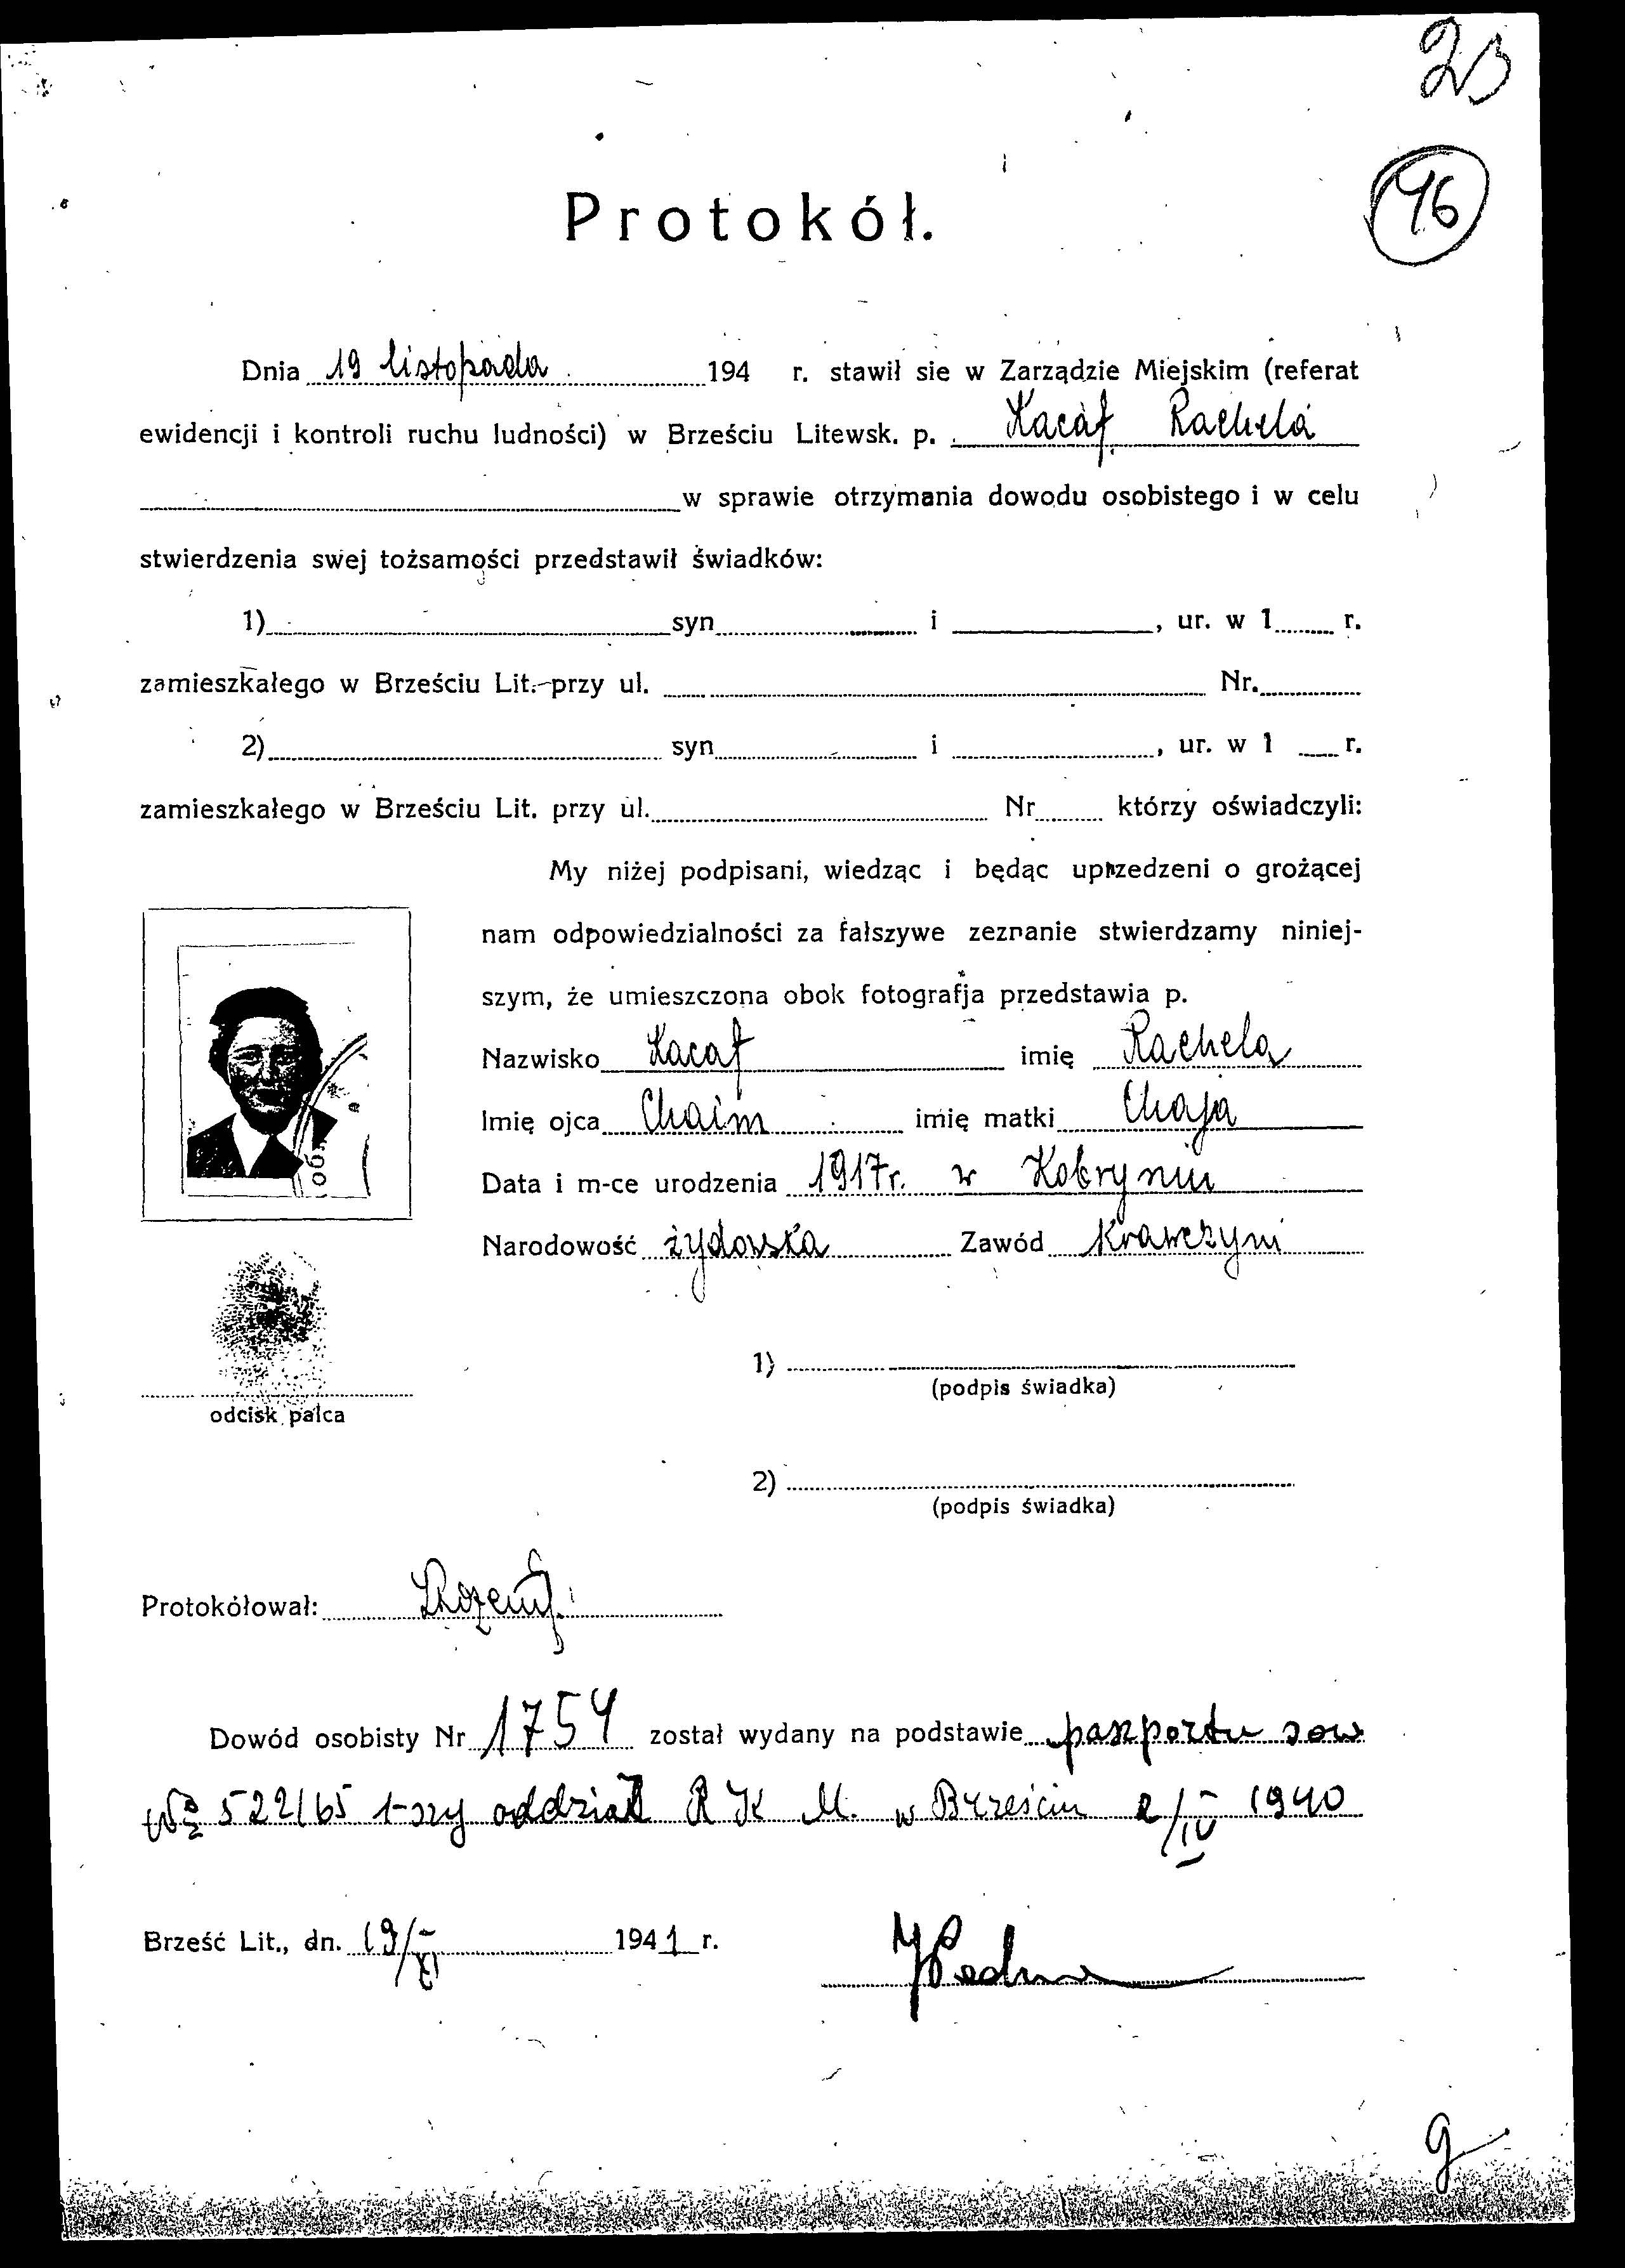 23
46
Protokół.
Dnia 19 listopada 194 r. stawił sie w Zarządzie Miejskim (referat
ewidencji i kontroli ruchu ludności) w Brześciu Litewsk. p. Kacaf Rachela
w sprawie otrzymania dowodu osobistego i w celu
stwierdzenia swej tożsamości przedstawił świadków:
1) syn i , ur. w 1 r.
zamieszkałego w Brześciu Lit. przy ul. Nr.
2) syn i , ur. w 1 r.
zamieszkałego w Brześciu Lit. przy ul. Nr którzy oświadczyli:
My niżej podpisani, wiedząc i będąc uprzedzeni o grożącej
nam odpowiedzialności za fałszywe zeznanie stwierdzamy niniej-
szym, że umieszczona obok fotografja przedstawia p.
Nazwisko Kacaf imię Rachela
Imię ojca Chaim imię matki Chaja
Data i m-ce urodzenia 1917r. w Kobryniu
Narodowość żydowska Zawód Krawczyni
odcisk palca
1)
(podpis świadka)
2)
(podpis świadka)
Protokółował:
Dowód osobisty Nr 1754 został wydany na podstawie paszportu sow
№ 522165 1-szy oddział R K M. w Brześciu 2/IV 1940
Brześć Lit., dn. 19/XI 1941 r.
g